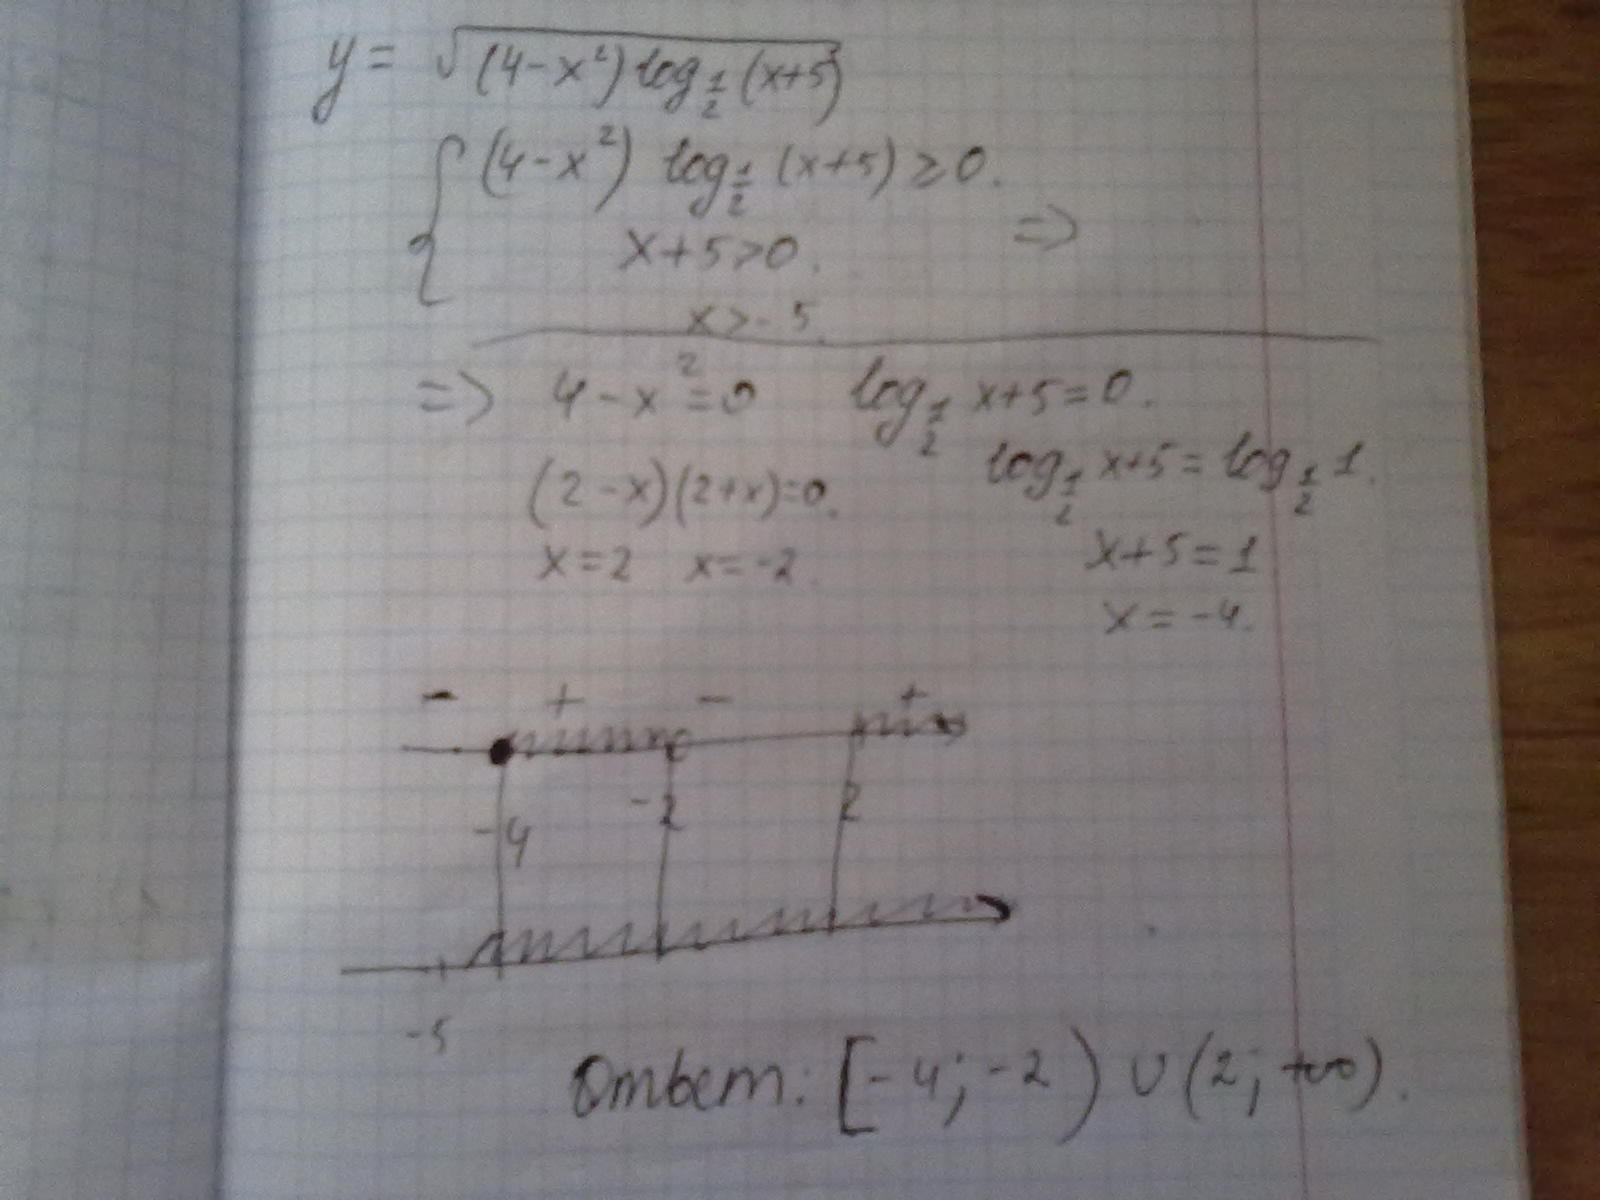 y = √(4-x²) log_{1/2} (x+5)
{ (4-x²) log_{1/2} (x+5) ≥ 0.
x+5>0. =>
x>-5.
=> 4-x²=0 log_{1/2} x+5=0.
log_{1/2} x+5 = log_{1/2} 1.
(2-x)(2+x)=0.
x+5=1
x=2 x=-2.
x=-4.
- + - +
-4 -2 2
-5
Ответ: [-4; -2) ∪ (2; +∞).